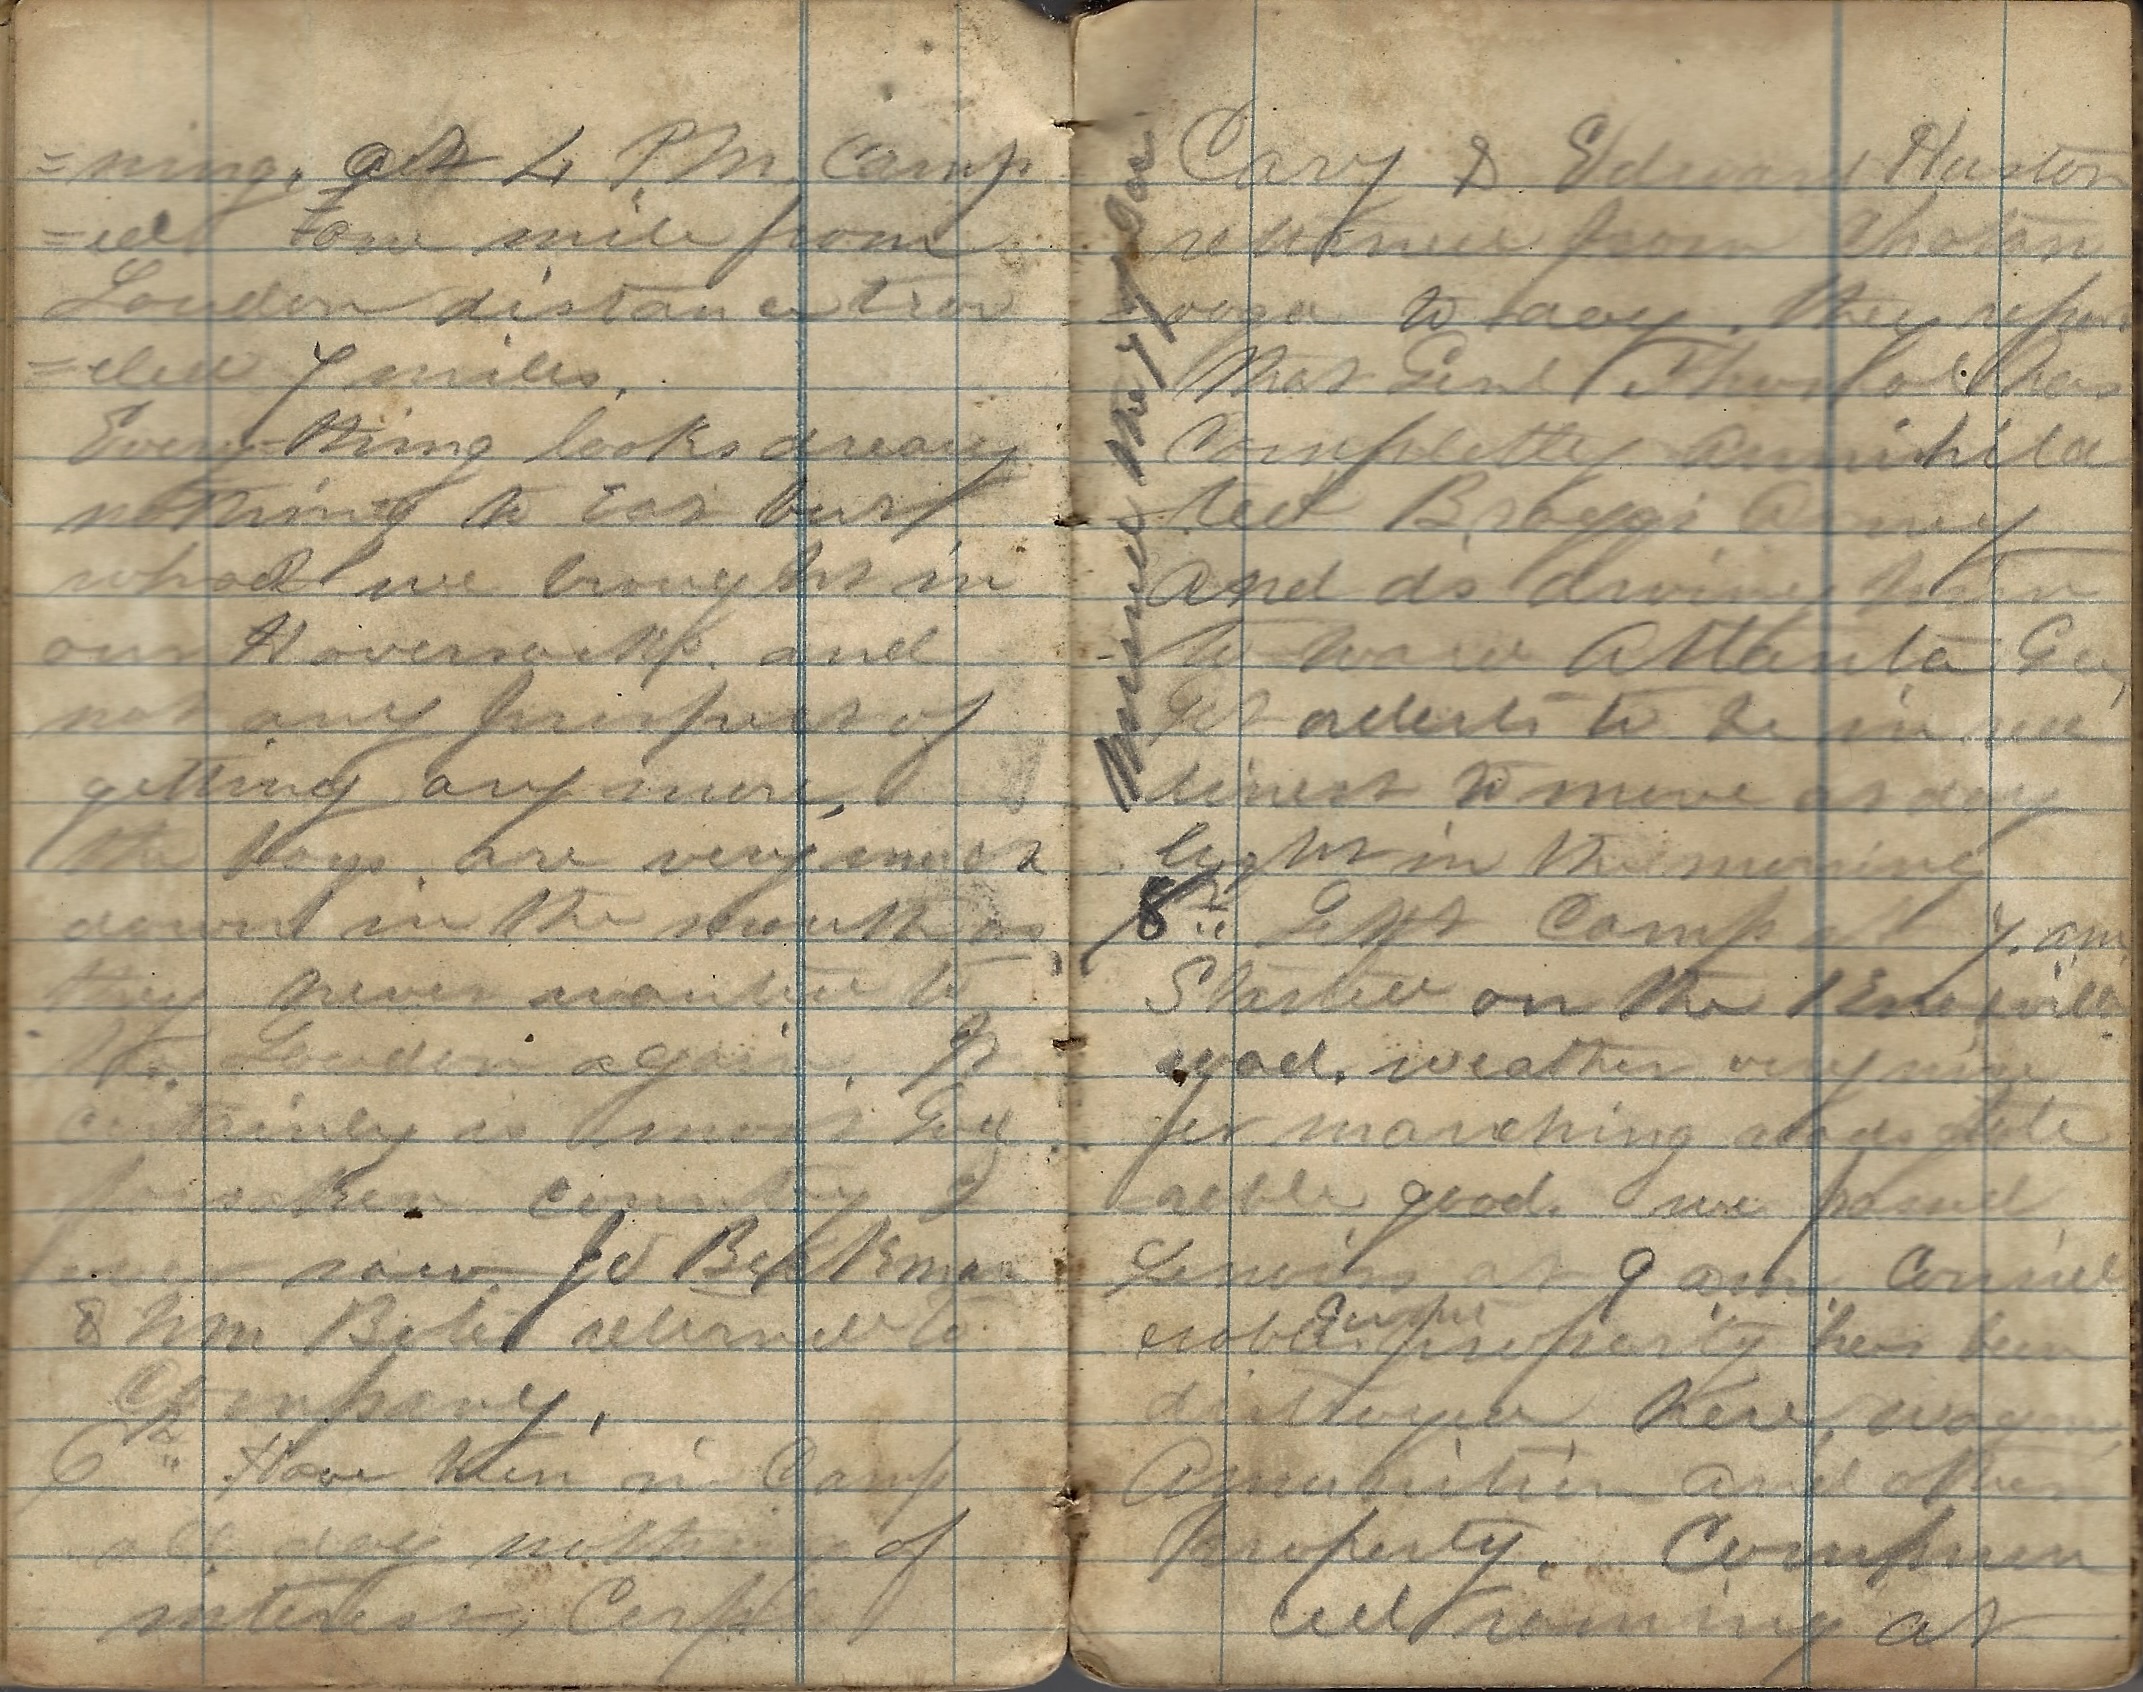 =ning. at 4 P.M. Camp
=ed one mile from
Loudon distance trav
=eled 7 miles.
Every-thing looks dreary
nothing to Eat but
what we brought in
our Haversacks. and
not any prospect of
getting any more,
the boys are very much
down in the mouth as
they never wanted to
Loudon again. It
certainly is most God
forsaken country I
ever saw. Beckman
& Wm returned to
Company,
6th Have been in Camp
all day nothing of
interest, Corpl
Cary & Edward Huston
returned from Chatan
=ooga to day. they report
that Genl has
completely annihila
ted Braggs Army
and is driving him
to ward Atlanta Ga,
Get orders to be in rea
diness to move at day
light in the morning
8th Left Camp at 7. am
Started on the Knoxville
road. weather very nice
for marching roads tole
rable good. we passed
Lenoirs at 9 am. Consid
erable property has been
distroyed here, wagons
Amunition and other
Property. Commen
ced raining at